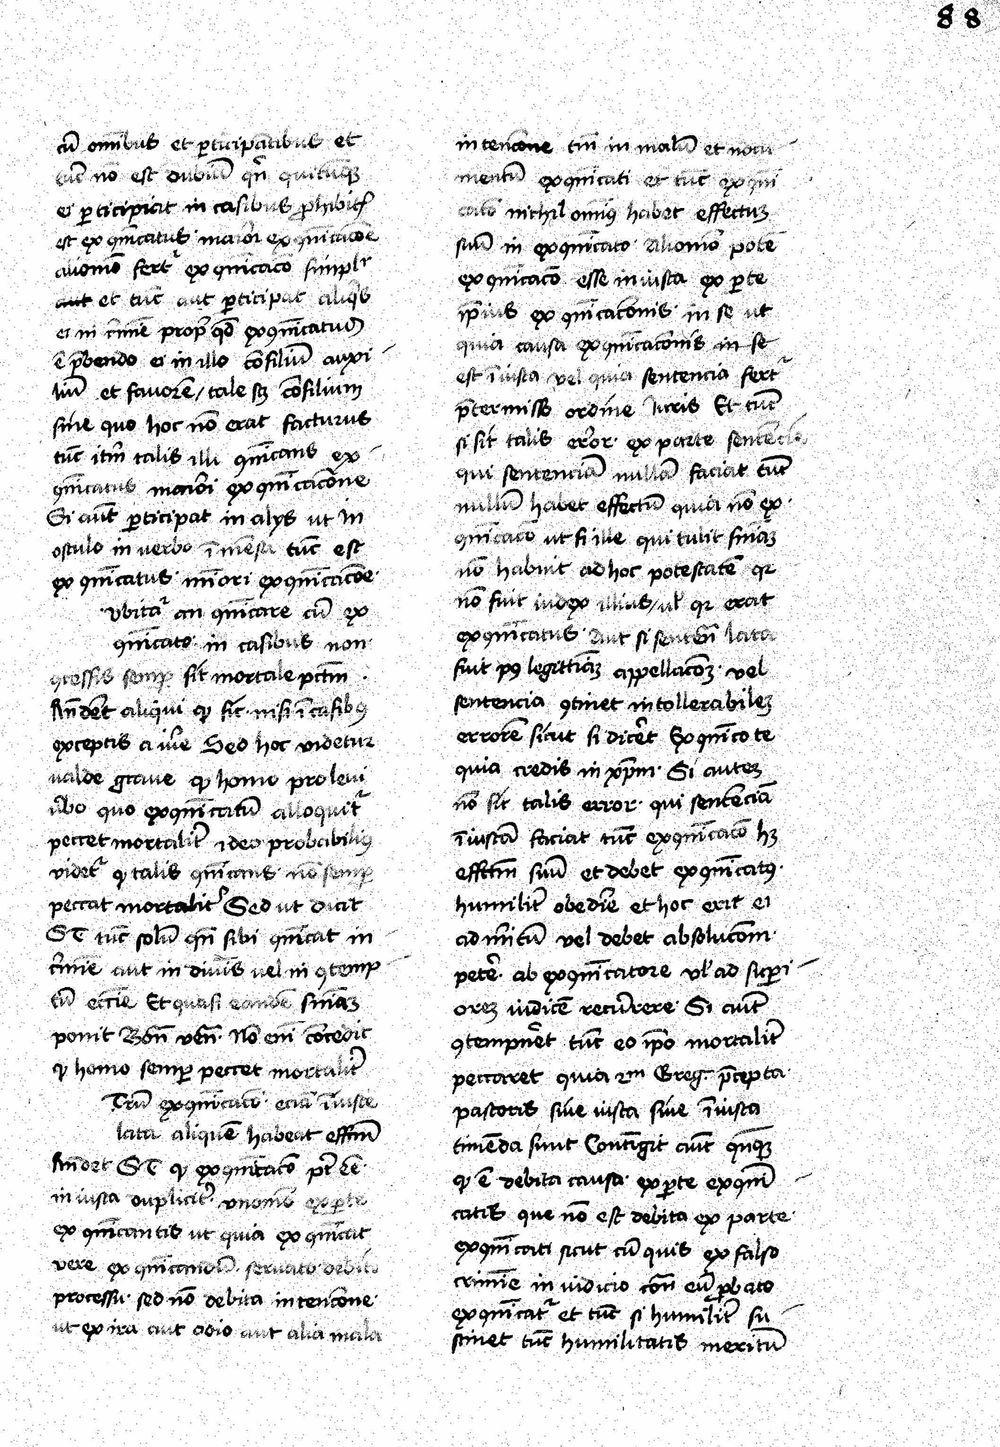 88
cū omībus et ꝑticipātibus et
tūc nō est dubiū qn̄ quicūqꝫ
ei ꝑticipat in casibus ꝓhibit
est exꝯmcatus maiori exꝯmcacōe
aliomō fertᷣ exꝯmcacō simplr
et tūc aut ꝑticipat aliqs
ei in cmīe propt qd exꝯmcatus
ē p̄bendo ei in illo cōsiliū auxi
liū et favorē / tale sꝫ cōsilium
sine quo hoc nō erat facturus
tūc itm̄ talis illi ꝯmcans ex
ꝯmcatus maiori exꝯmcacōne
Si aūt ꝑticipat in alys ut in
osculo in verbo ī mēsa tūc est
exꝯmcatus minori exꝯmcacōe
vbitatᷣ an ꝯmcare cū ex
ꝯmcato in casibus non
ꝯcessis semꝑ sit mortale pctm̄
Rn̄dēt aliqui ꝙ sic nisi ī casibꝰ
exceptis a iure Sed hoc videtur
valde grave ꝙ homo pro levi
ūbo quo exꝯmcatū alloquitᷣ
peccet mortalitᷣ ideo probabiliꝰ
videtᷣ ꝙ talis ꝯmcans nō semꝑ
peccat mortalitᷣ Sed ut dicit
S T tūc solū qn̄ sibi ꝯmcat in
cmīe aut in divīs vel in ꝯtemp
tū ecctīe Et quasi eandē sn̄iaꝫ
ponit Bon̄ ven̄ Nō em̄ cōcedit
ꝙ homo semꝑ peccet mortalitᷣ
Trū exꝯmcacō eciā īiuste
lata aliquē habeat effm̄
Rn̄det S T ꝙ exꝯmcacō pt ēē
iniusta duplicitᷣ vnomō ex ꝑte
exꝯmcantis ut quia exꝯmcat
vere exꝯmcandū servato debito
processu sed nō debita intencōne
ut ex ira aut odio aut alia mala
intencōne tm̄ in malū et nocu
mentū exꝯmcati et tūc exꝯmi
cacō nichilominꝰ habet effectuꝫ
suū in exꝯmcato Aliomō potē
exꝯmcacō esse iniusta ex ꝑte
ipsius exꝯmcacōnis in se ut
quia causa exꝯmcacōnis in se
est īiusta vel quia sentencia fertᷣ
p̄termisso ordine iuris Et tūc
si sit talis error ex parte sentencie
qui sentenciā nullā faciat tūc
nullū habet effectū quia nō ex
ꝯmcacō ut si ille qui tulit sn̄iaꝫ
nō habuit ad hoc potestatē qꝛ
nō fuit iudex illius / ul̄ qꝛ erat
exꝯmcatus Aut si sentēn lata
fuit pꝰ legittimā appellacōꝫ vel
sentencia ꝯtinet intollerabileꝫ
errorē sicut si dicet Exꝯmco te
quia credis in xp̄m Si auteꝫ
nō sit talis error qui sentenciā
īiustā faciat tūc exꝯmcacō hꝫ
effctm̄ suū et debet exꝯmcatꝰ
humilitᷣ obedire et hoc erit ei
ad mitū vel debet absolucōm
petere ab exꝯmcatore ul̄ ad supi
oreꝫ iudicē recurrere Si aūt
ꝯtempnet tūc eo ip̄o mortalitᷣ
peccaret quia 2m Greg p̄cepta
pastoris sive iusta sive īiusta
timēda sunt Contigit aūt qn̄qꝫ
ꝙ ē debita causa ex ꝑte exꝯmi
catis que nō est debita ex parte
exꝯmcati sicut cū quis ex falso
crimīe in iudicio cōn eū ꝓbato
exꝯmcatᷣ et tūc si humilitᷣ su
stinet tūc humilitatis meritū